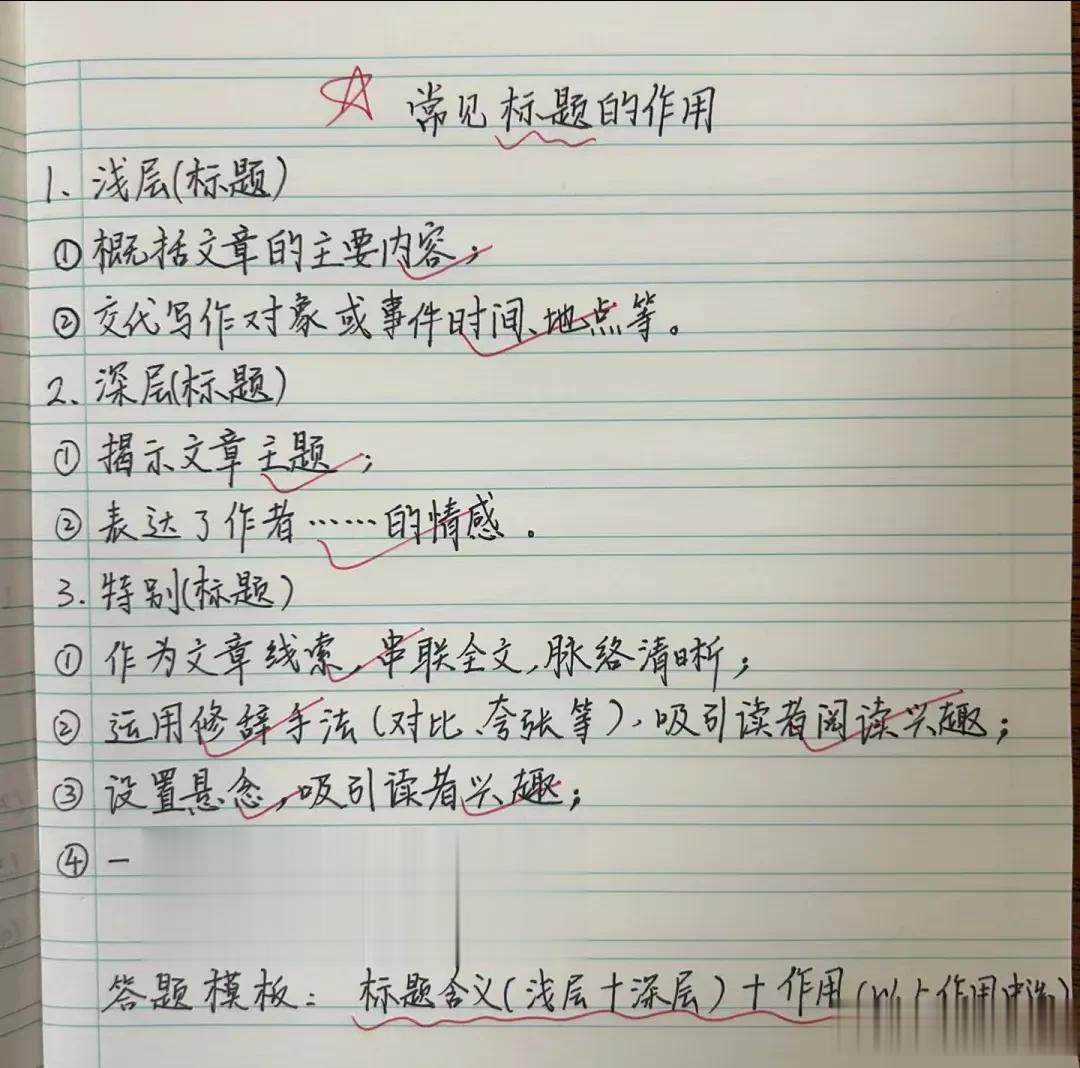 常见标题的作用
1、浅层(标题)
①概括文章的主要内容；
②交代写作对象或事件时间、地点等。
2、深层(标题)
①揭示文章主题；
②表达了作者……的情感.
3.特别(标题)
①作为文章线索,串联全文,脉络清晰；
②运用修辞手法(对比、夸张等),吸引读者阅读兴趣；
③设置悬念,吸引读者兴趣；
④一
答题模板：标题含义(浅层+深层)+作用(以上作用中选)